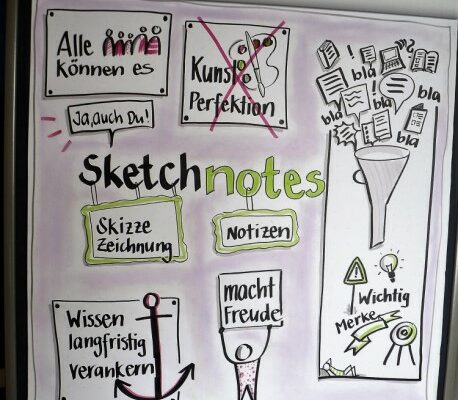 Alle
können es
Ja, auch Du!
Kunst
Perfektion
Sketchnotes
Skizze
Zeichnung
Notizen
Wissen
langfristig
verankern
macht
Freude
!
bla
bla
!
bla
bla
bla
Wichtig
Merke